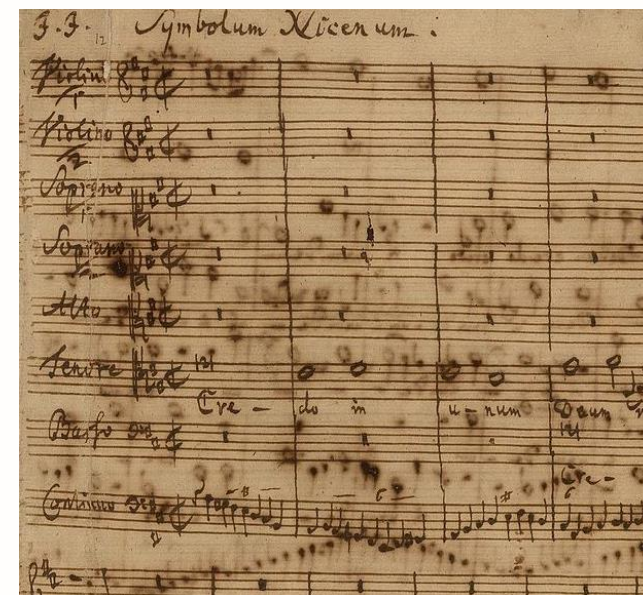 J. J. Symbolum Nicenum.
12
Violino
1
Violino
2
Soprano
1
Soprano
Alto
Tenore
Cre - do in u - num Deum
Basso
Cre -
Continuo
6 # 6